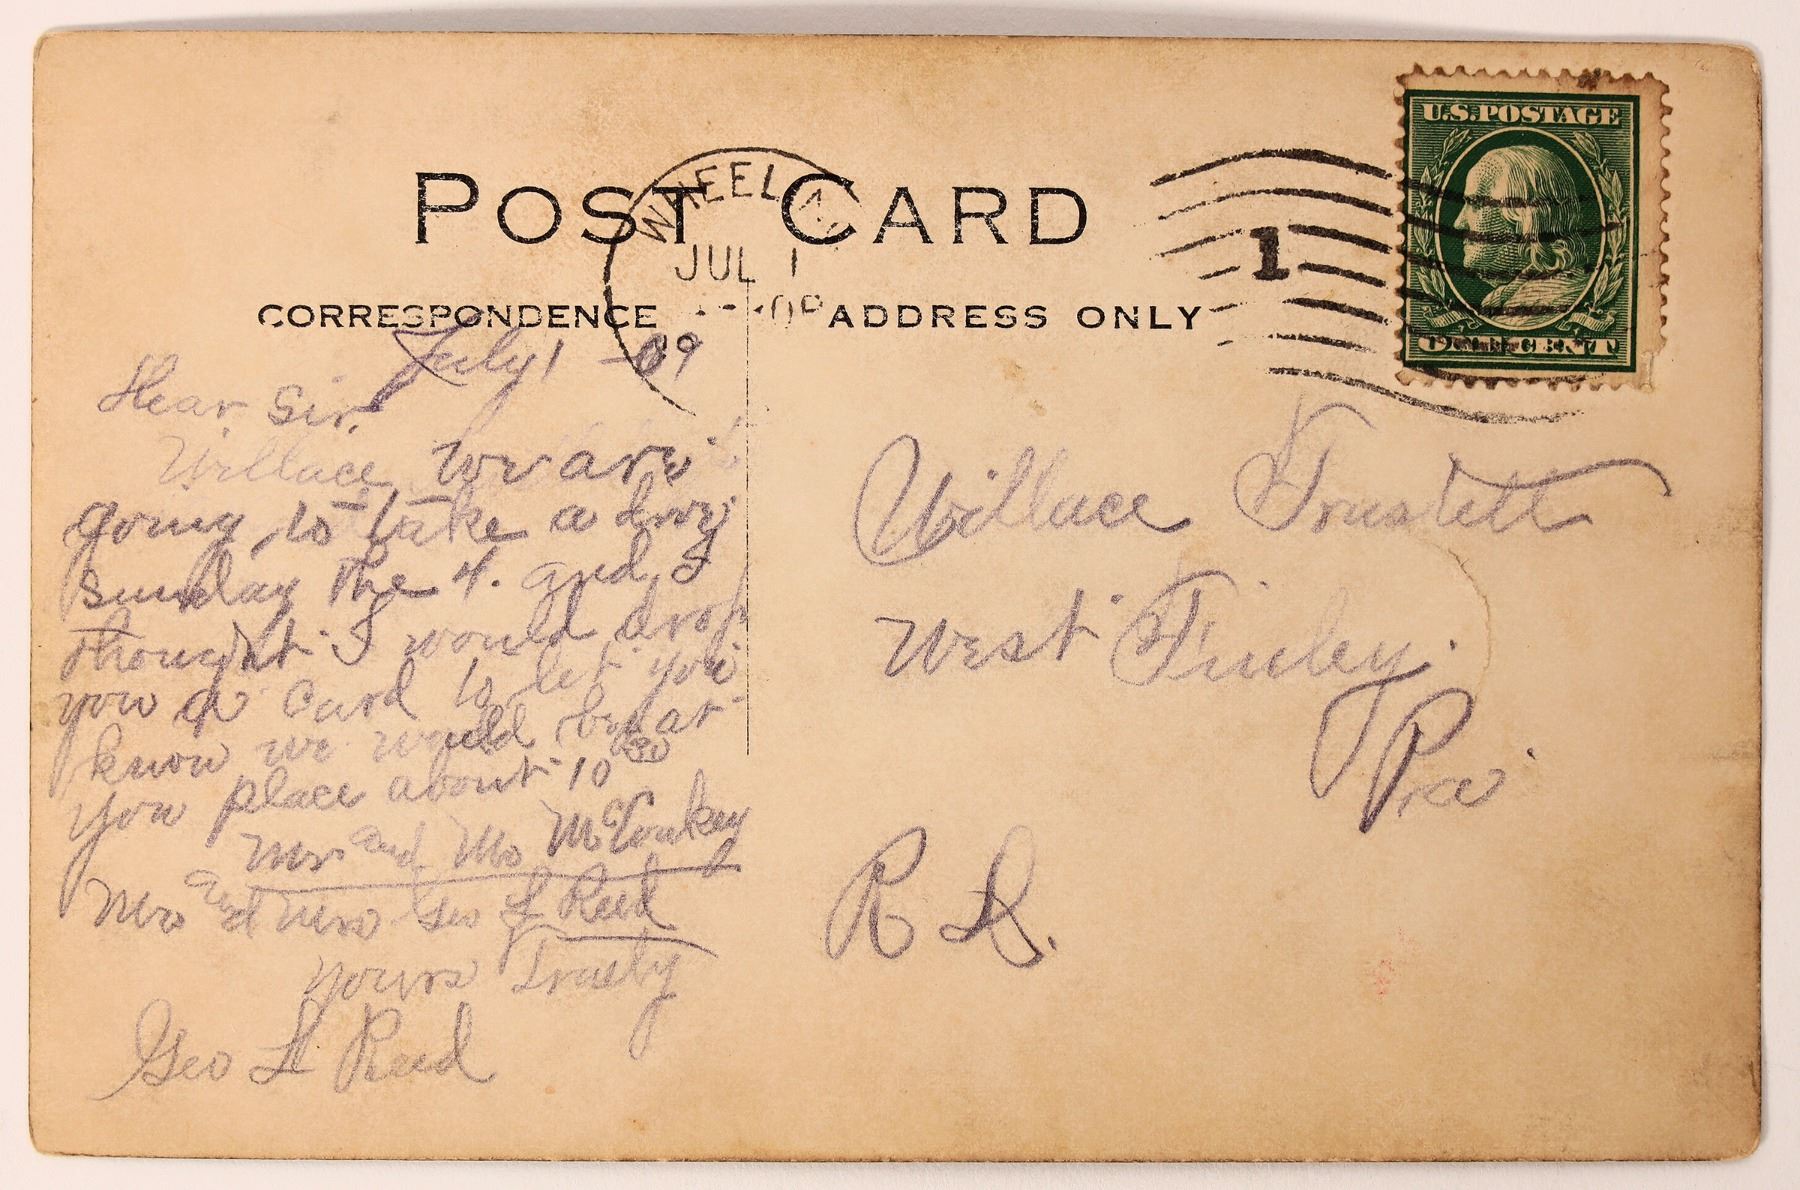 POST CARD
WHEELING
JUL 1
09
CORRESPONDENCE
ADDRESS ONLY
1
U.S. POSTAGE
ONE CENT
July 1 - 09
Dear Sir.
Willace we are
going to take a driv
Sunday the 4. and I
thought I would drop
you a Card to let you
know we would be at
you place about 10 30
Mr and Ms McConkey
Mrs and Mrs Geo L Reed
Yours Truly
Geo L Reed
Willace Trustett
West Finley.
Pa
R D.